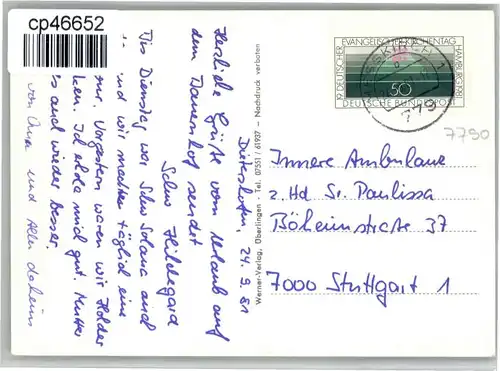 cp46652
Dietershofen, 24.9.81
Herzliche Grüße vom Urlaub auf
dem Tannenhof sendet
Schw. Hildegard
Bis Dienstag war Schw. Solana auch
und wir machten täglich eine
Vorgestern waren wir Holder
ken. Ich erhole mich gut. Mutter
s auch wieder besser.
von Oma und Allen daheim
Werner-Verlag, Überlingen - Tel. 07551 / 61937 - Nachdruck verboten
19. DEUTSCHER EVANGELISCHER KIRCHENTAG HAMBURG 1981
50
DEUTSCHE BUNDESPOST
779
7790
Innere Ambulanz
z. Hd Sr. Paulissa
Böheimstraße 37
7000 Stuttgart 1